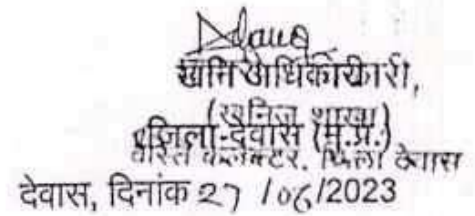 खनि अधिकारी,
(खनिज शाखा)
जिला-देवास (म.प्र.)
वास्ते कलेक्टर, जिला देवास
देवास, दिनांक 27 /06/2023